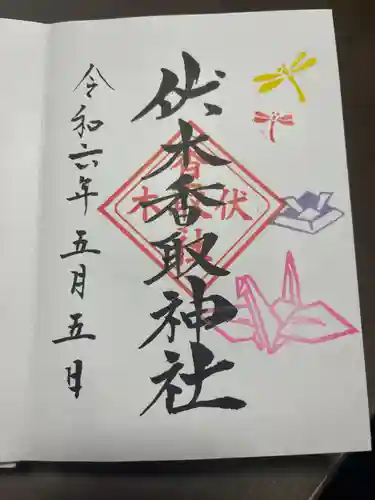 伏木香取神社
令和六年五月五日
伏木
香取
神社